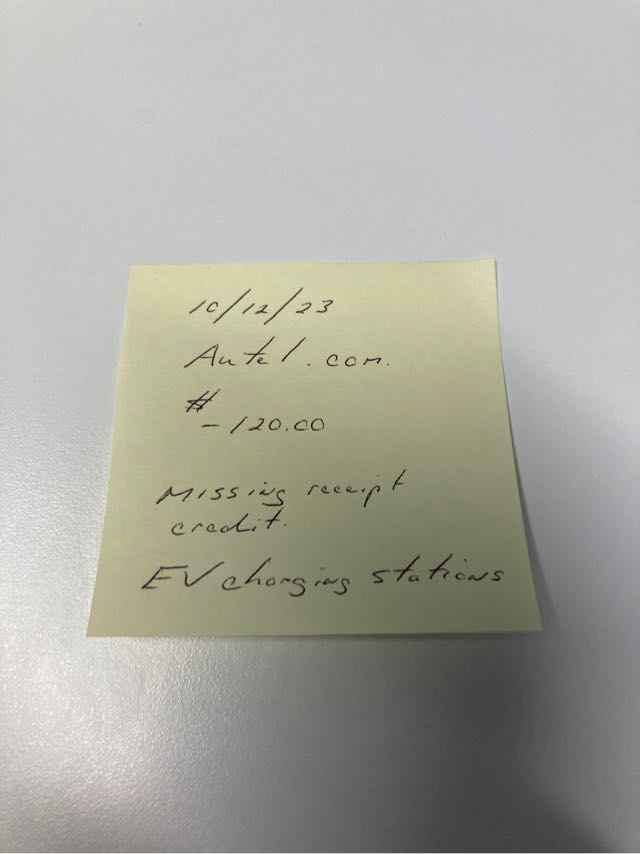 10/12/23
Autel.com.
#
-120.00
Missing receipt
credit.
EV charging stations